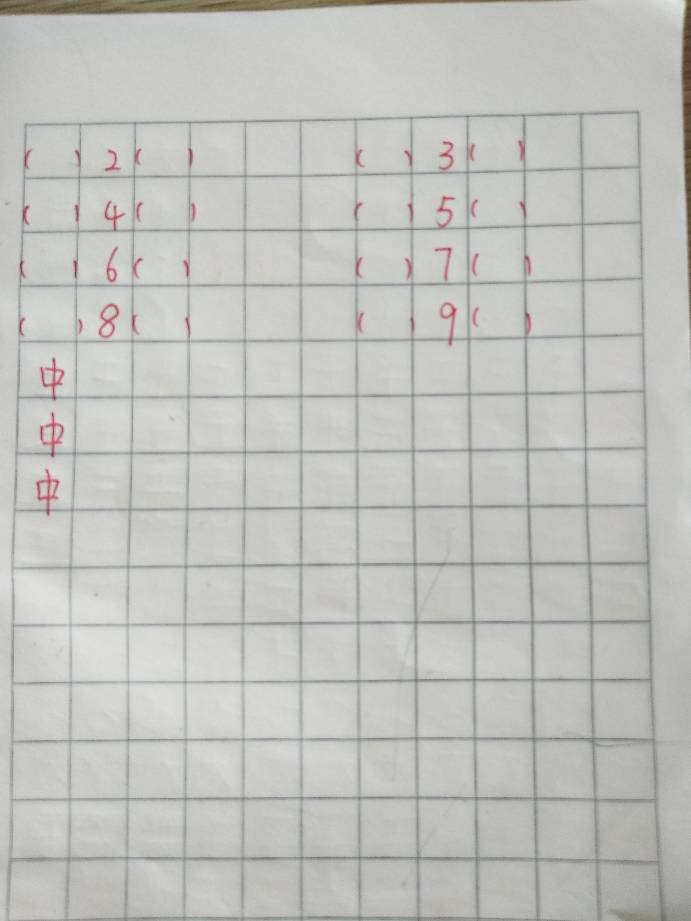 ( ) 2 ( ) ( ) 3 ( )
( ) 4 ( ) ( ) 5 ( )
( ) 6 ( ) ( ) 7 ( )
( ) 8 ( ) ( ) 9 ( )
中
中
中